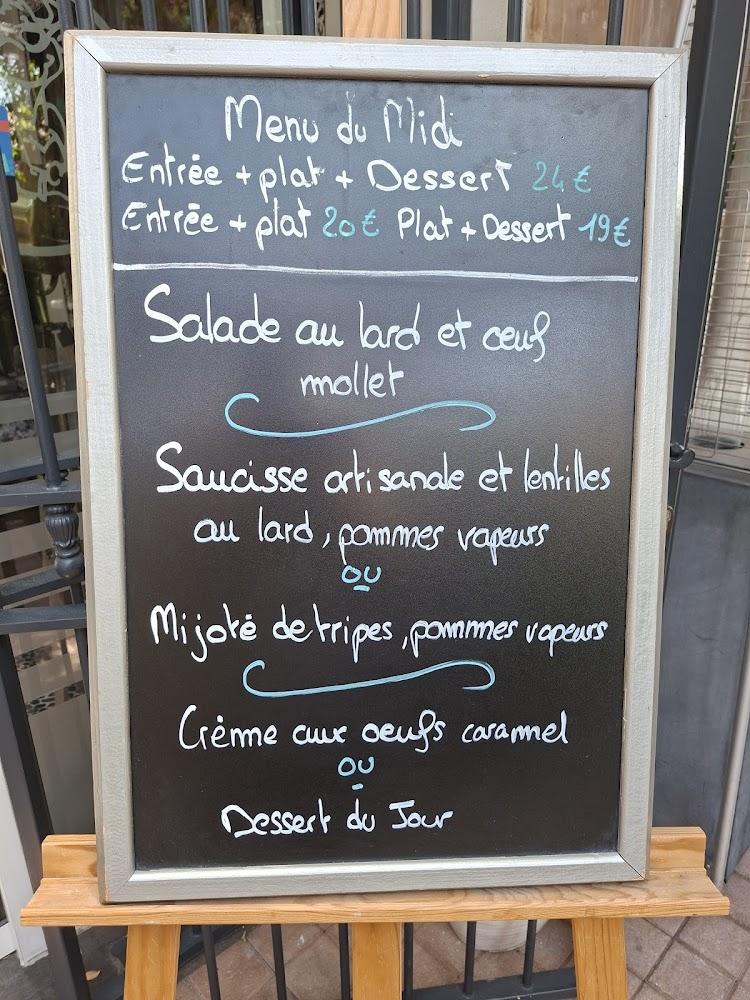 Menu du Midi
Entrée + plat + Dessert 24€
Entrée + plat 20€ Plat + Dessert 19€
Salade au lard et œuf
mollet
Saucisse artisanale et lentilles
au lard, pommes vapeurs
ou
Mijoté de tripes, pommmes vapeurs
Crème aux oeufs caramel
ou
Dessert du Jour